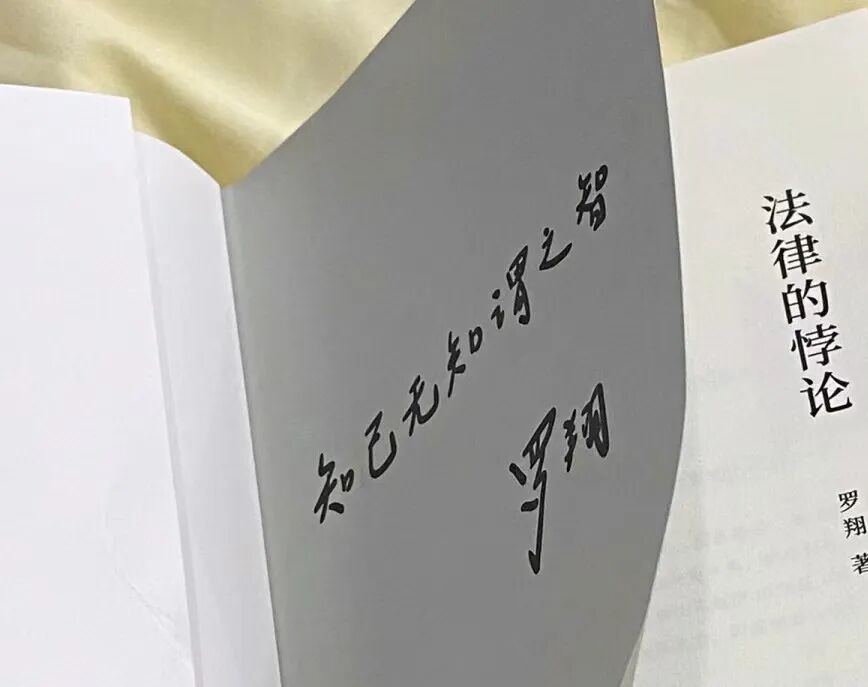 知己无知谓之智
罗翔
法律的悖论
罗翔 著